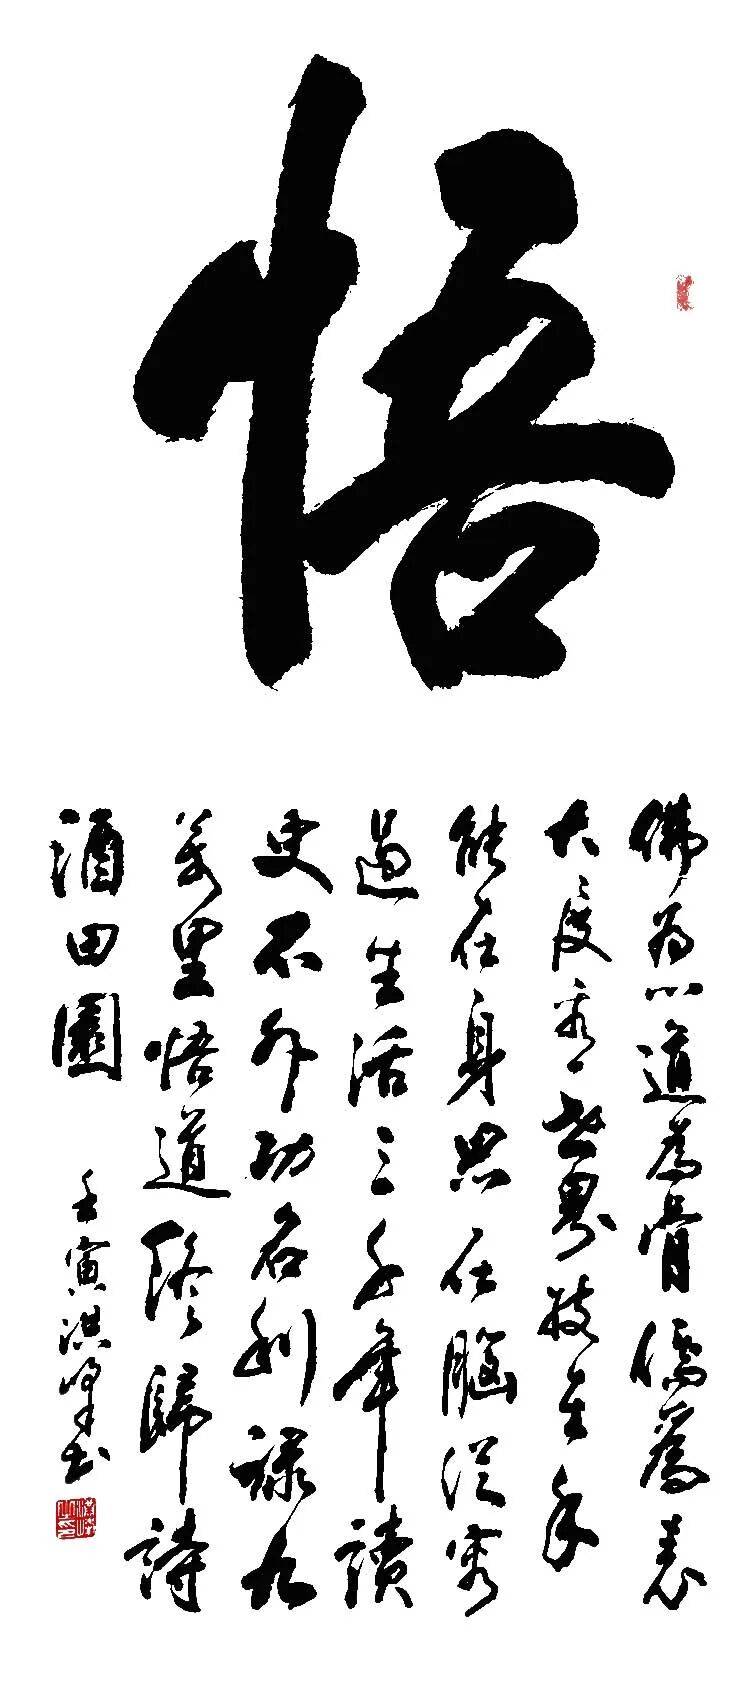 悟
佛为心道為骨儒為表
大度看世界技在手
能在身思在腦從容
過生活三千年讀
史不外功名利祿九
萬里悟道終歸詩
酒田園
壬寅洪峰书